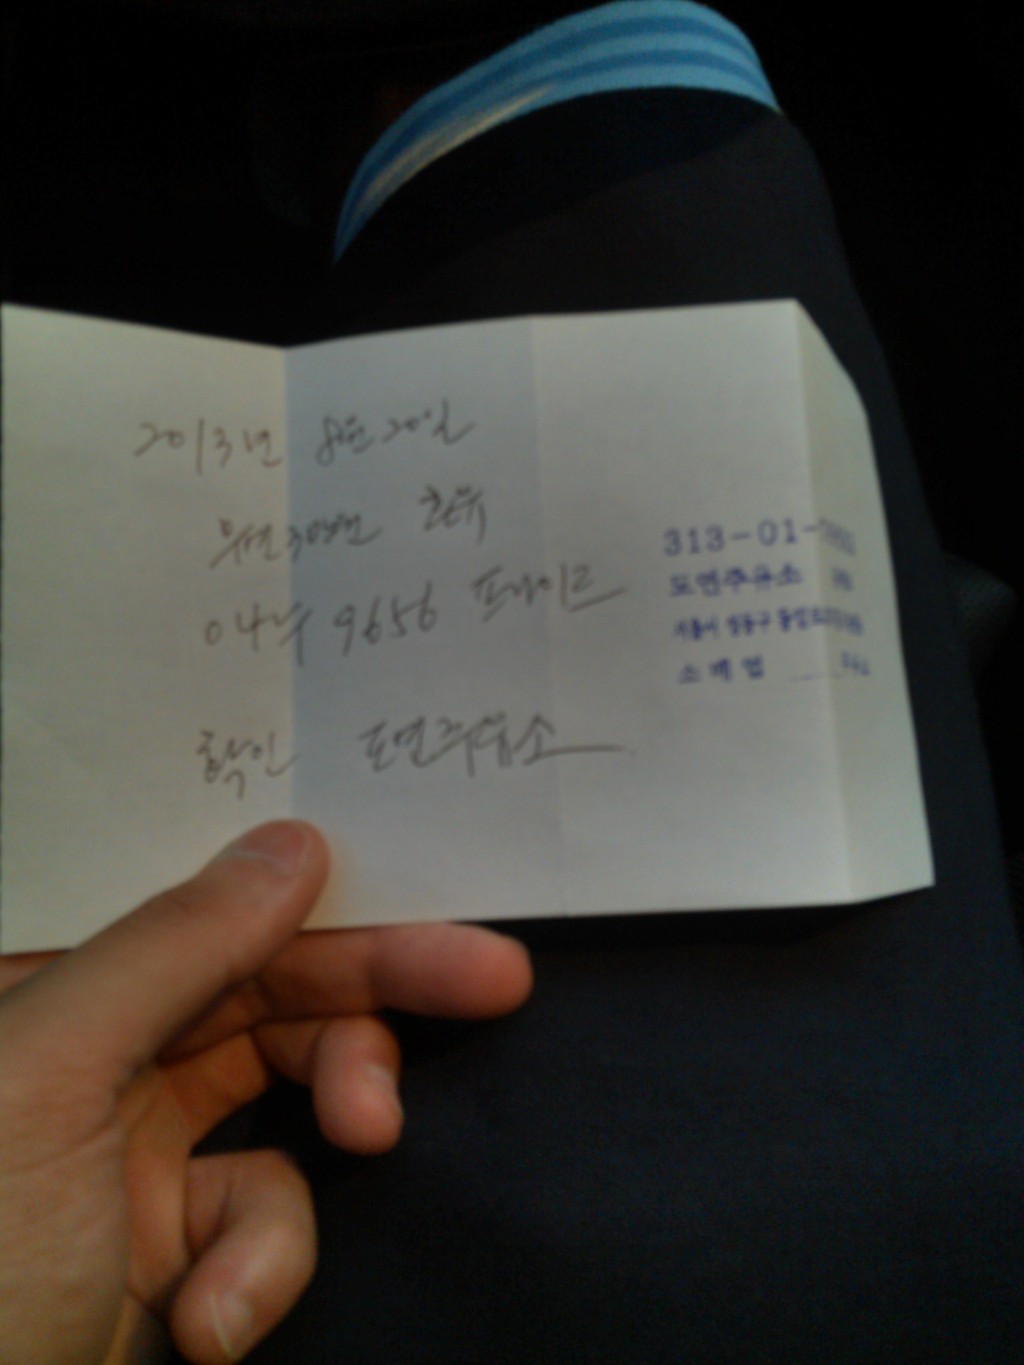 2013년 8월 20일
무연 3만원 주유
04누 9656 프라이드
확인 도연주유소
313-01-
도연주유소
서울시 성동구
소매업